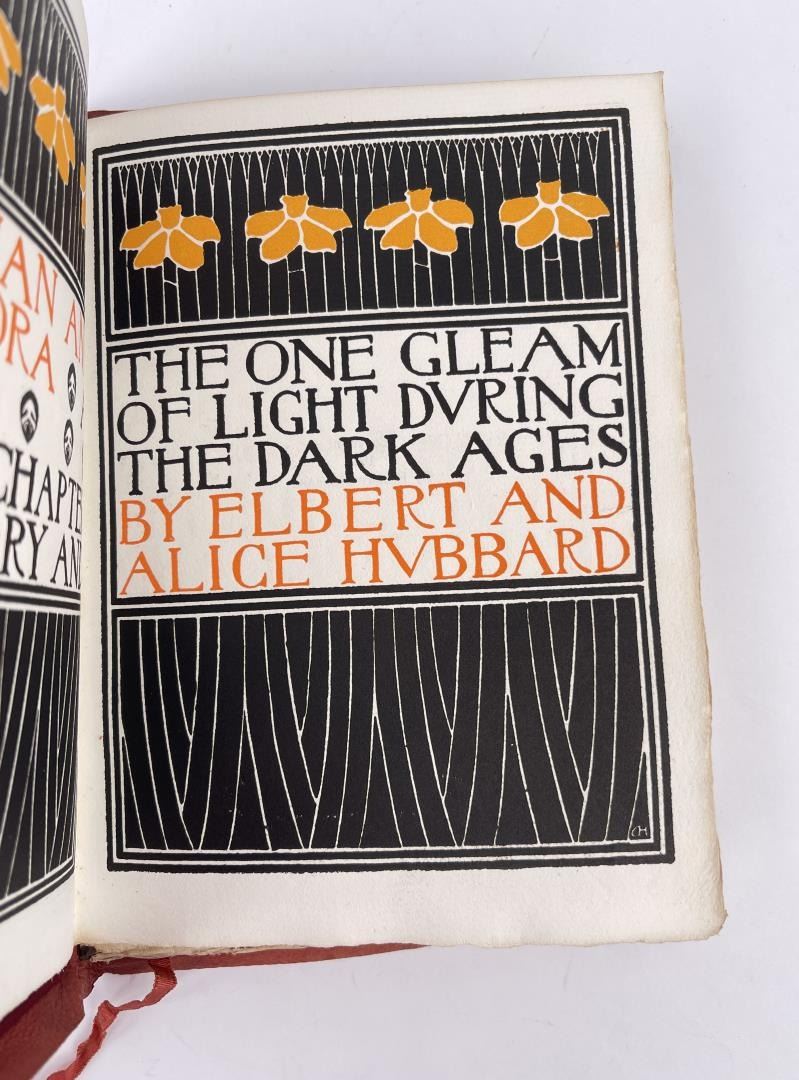 AN A
ORA
CHAPTE
RY AND
THE ONE GLEAM
OF LIGHT DVRING
THE DARK AGES
BY ELBERT AND
ALICE HVBBARD
CH